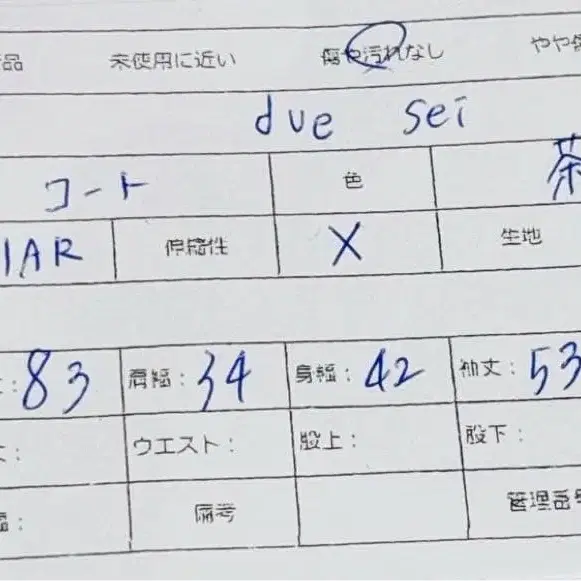 品 未使用に近い 傷や汚れなし やや傷
due sei
コート 色 茶
IAR 伸縮性 X 生地
: 83 肩幅: 34 身幅: 42 袖丈: 53
: ウエスト: 股上: 股下:
幅: 備考 管理番号